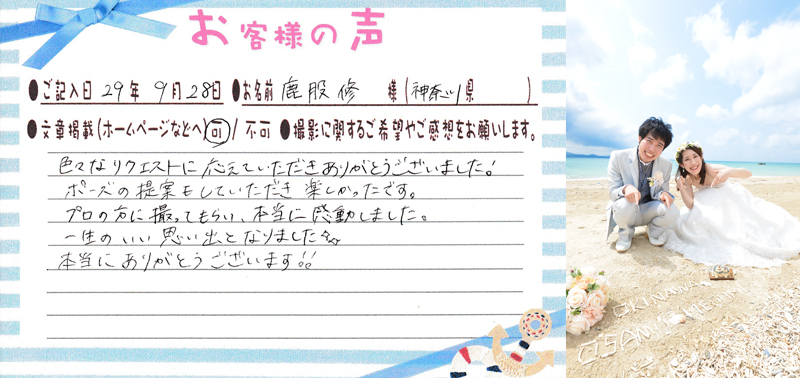 お客様の声
●ご記入日 29年 9月28日 ●お名前 鹿股修 様 (神奈川県 )
●文章掲載(ホームページなどへ) 可 / 不可 ●撮影に関するご希望やご感想をお願いします。
色々なリクエストに応えていただきありがとうございました!
ポーズの提案もしていただき楽しかったです。
プロの方に撮ってもらい、本当に感動しました。
一生のいい思い出となりました☆☆
本当にありがとうございます!!
OKINAWA